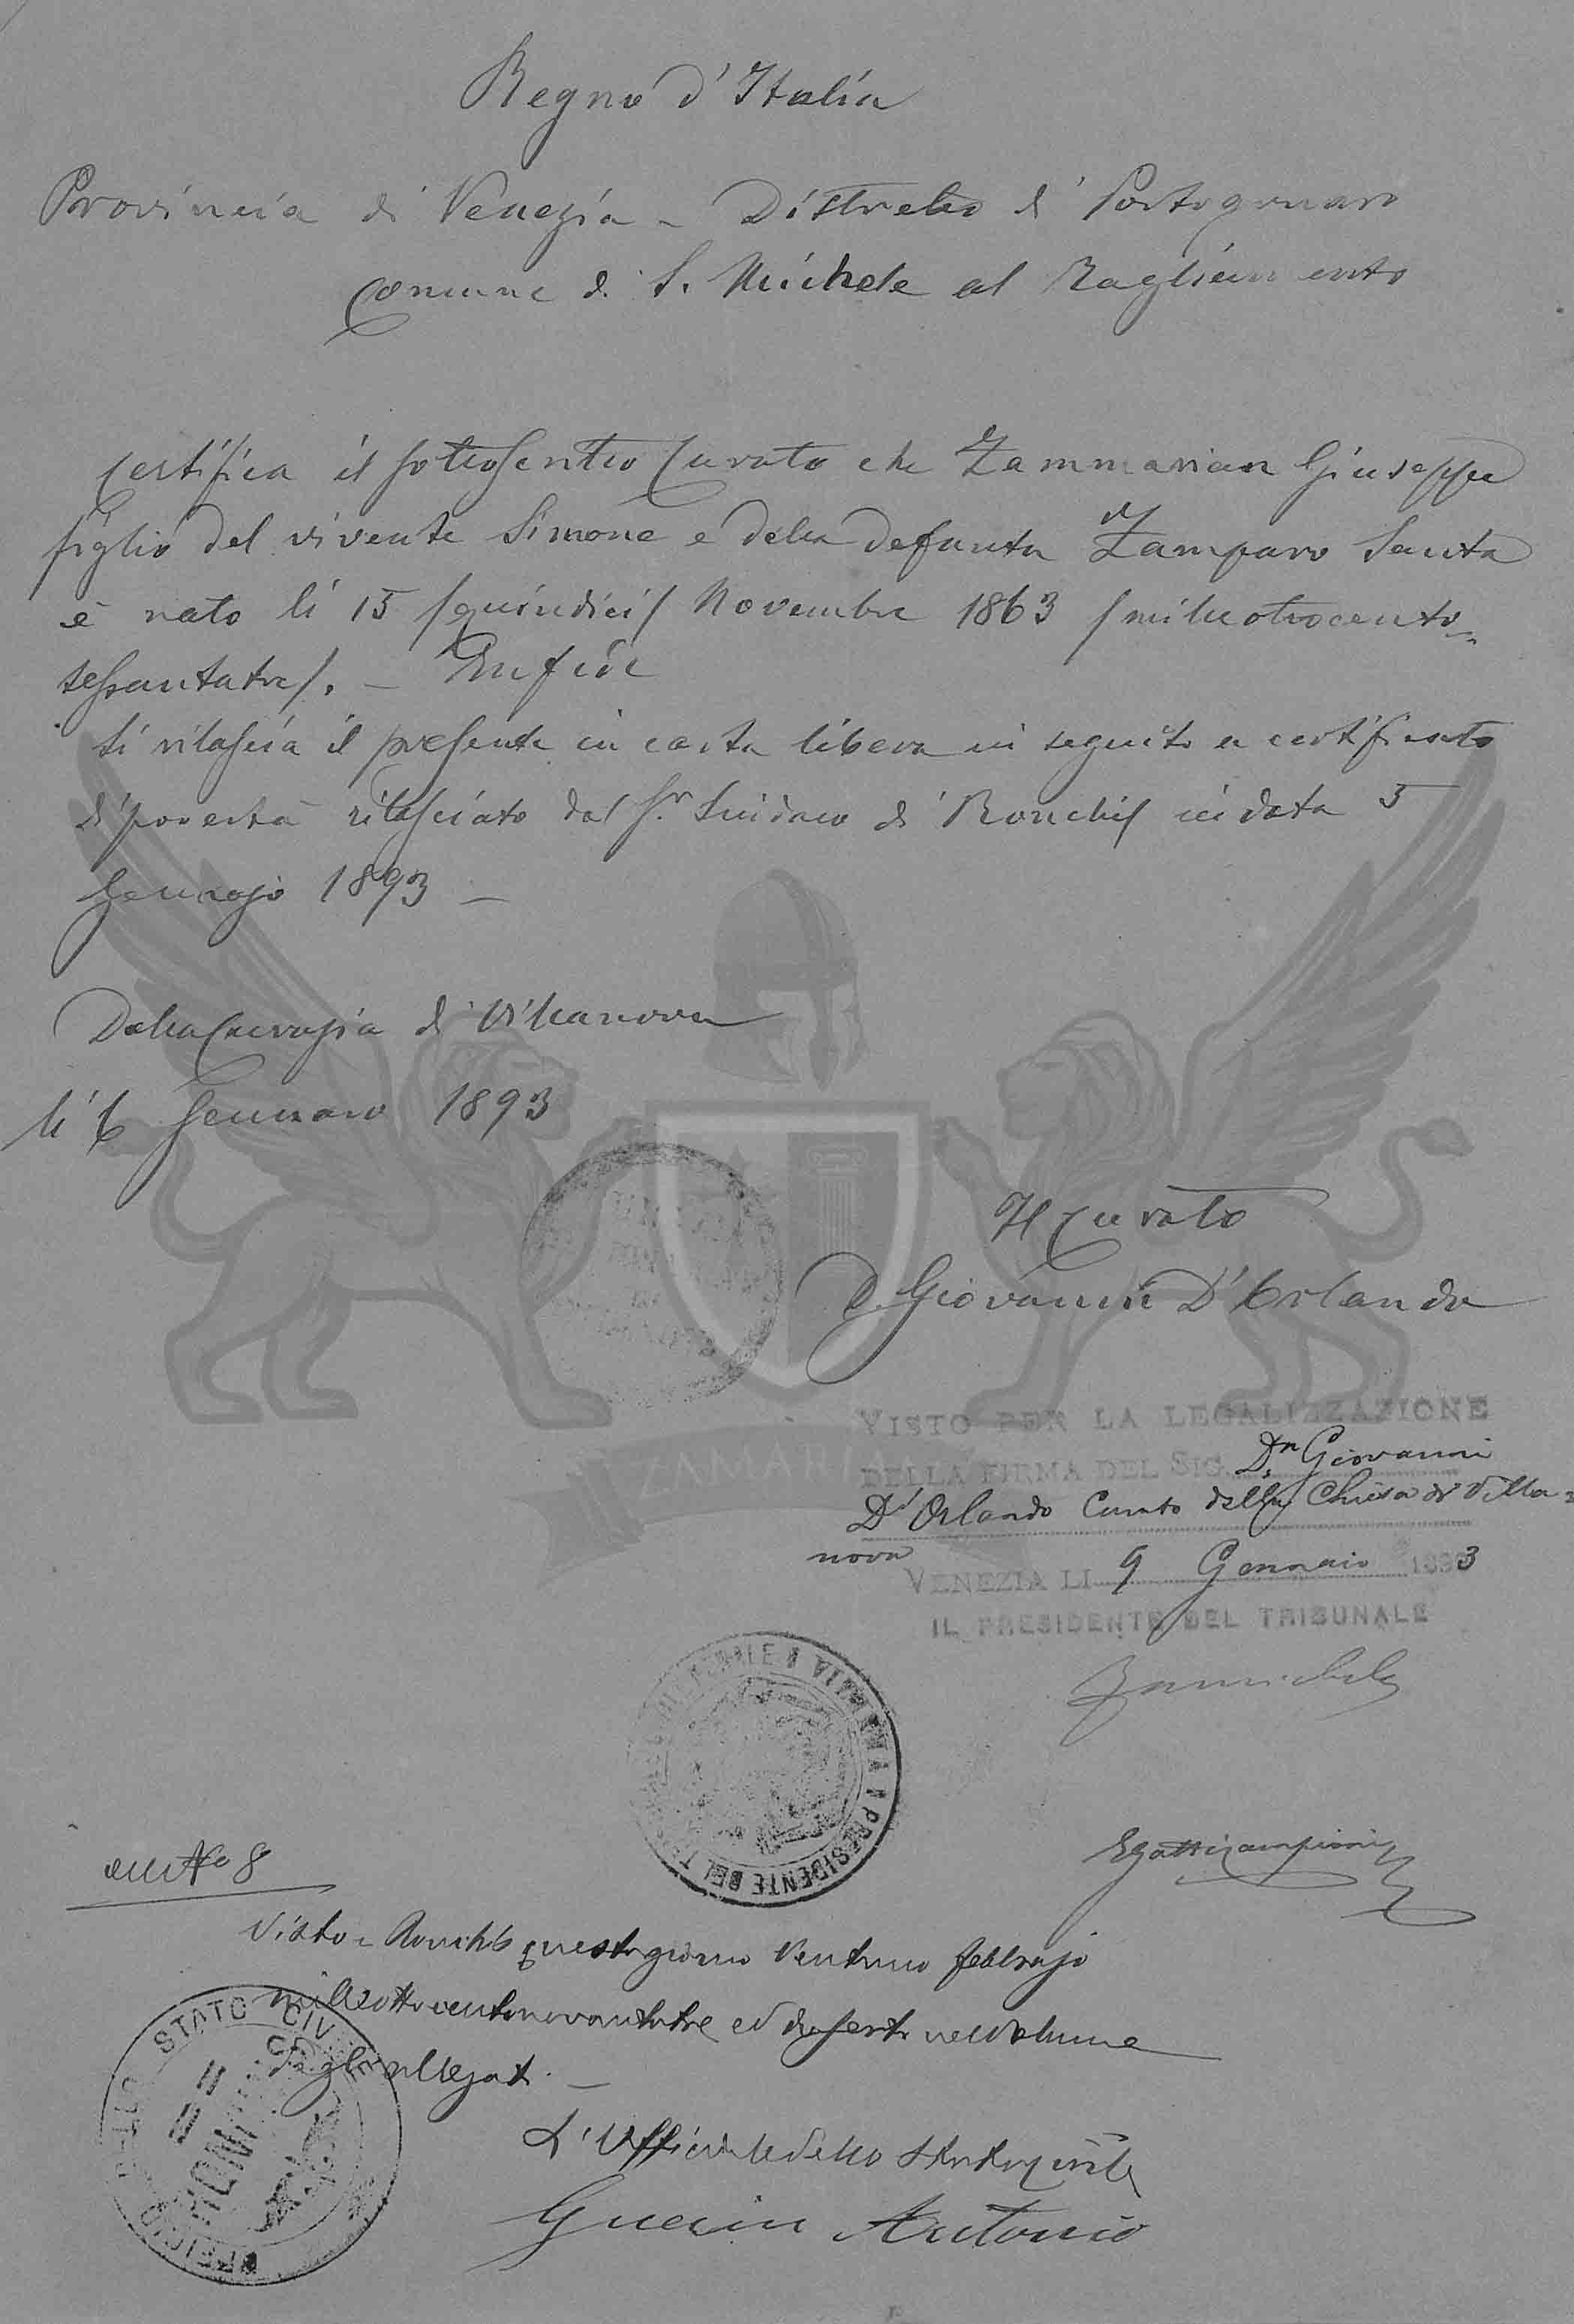 Regno d'Italia
Provincia di Venezia - Distretto di Portogruaro
Comune di S. Michele al Tagliamento
Certifica il sottoscritto Curato che Zammarian Giuseppe
figlio del vivente Simone e della defunta Zamparo Santa
è nato li 15 /quindici/ Novembre 1863 /milleottocento=
sessantatre/. - In fede
Si rilascia il presente in carta libera in seguito a certificato
di povertà rilasciato dal Sr. Sindaco di Ronchis in data 5
Gennajo 1893 -
Dalla Curazia di Villanova
li 6 Gennaro 1893
Il Curato
D. Giovanni D'Orlando
VISTO PER LA LEGALIZZAZIONE
DELLA FIRMA DEL SIG. Dn. Giovanni
D'Orlando Curato della Chiesa di Villa=
nova
VENEZIA LI 9 Gennaio 1893
IL PRESIDENTE DEL TRIBUNALE
PRESIDENTE DEL
No 8
Visto - Ronchis questo giorno Ventuno febbrajo
milleottocentonovantatre ed inserto nel Volume
degli allegati. -
L'Ufficiale dello Stato Civile
Guerin Antonio
UFFICIO DELLO STATO CIVILE